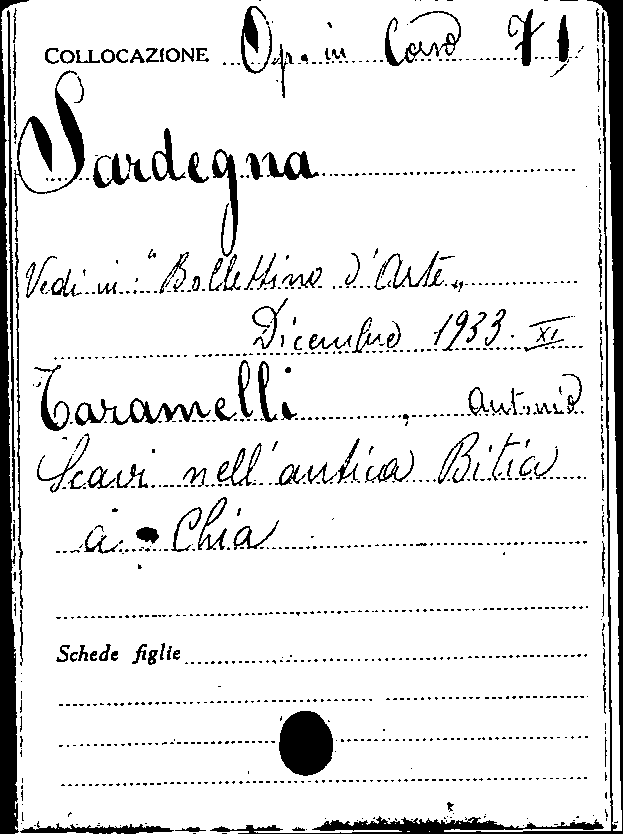 COLLOCAZIONE Op. in Caso 71
Sardegna
Vedi in: "Bollettino d'Arte„
Dicembre 1933. XI
Taramelli, Antonio
Scavi nell'antica Bitia
a Chia
Schede figlie